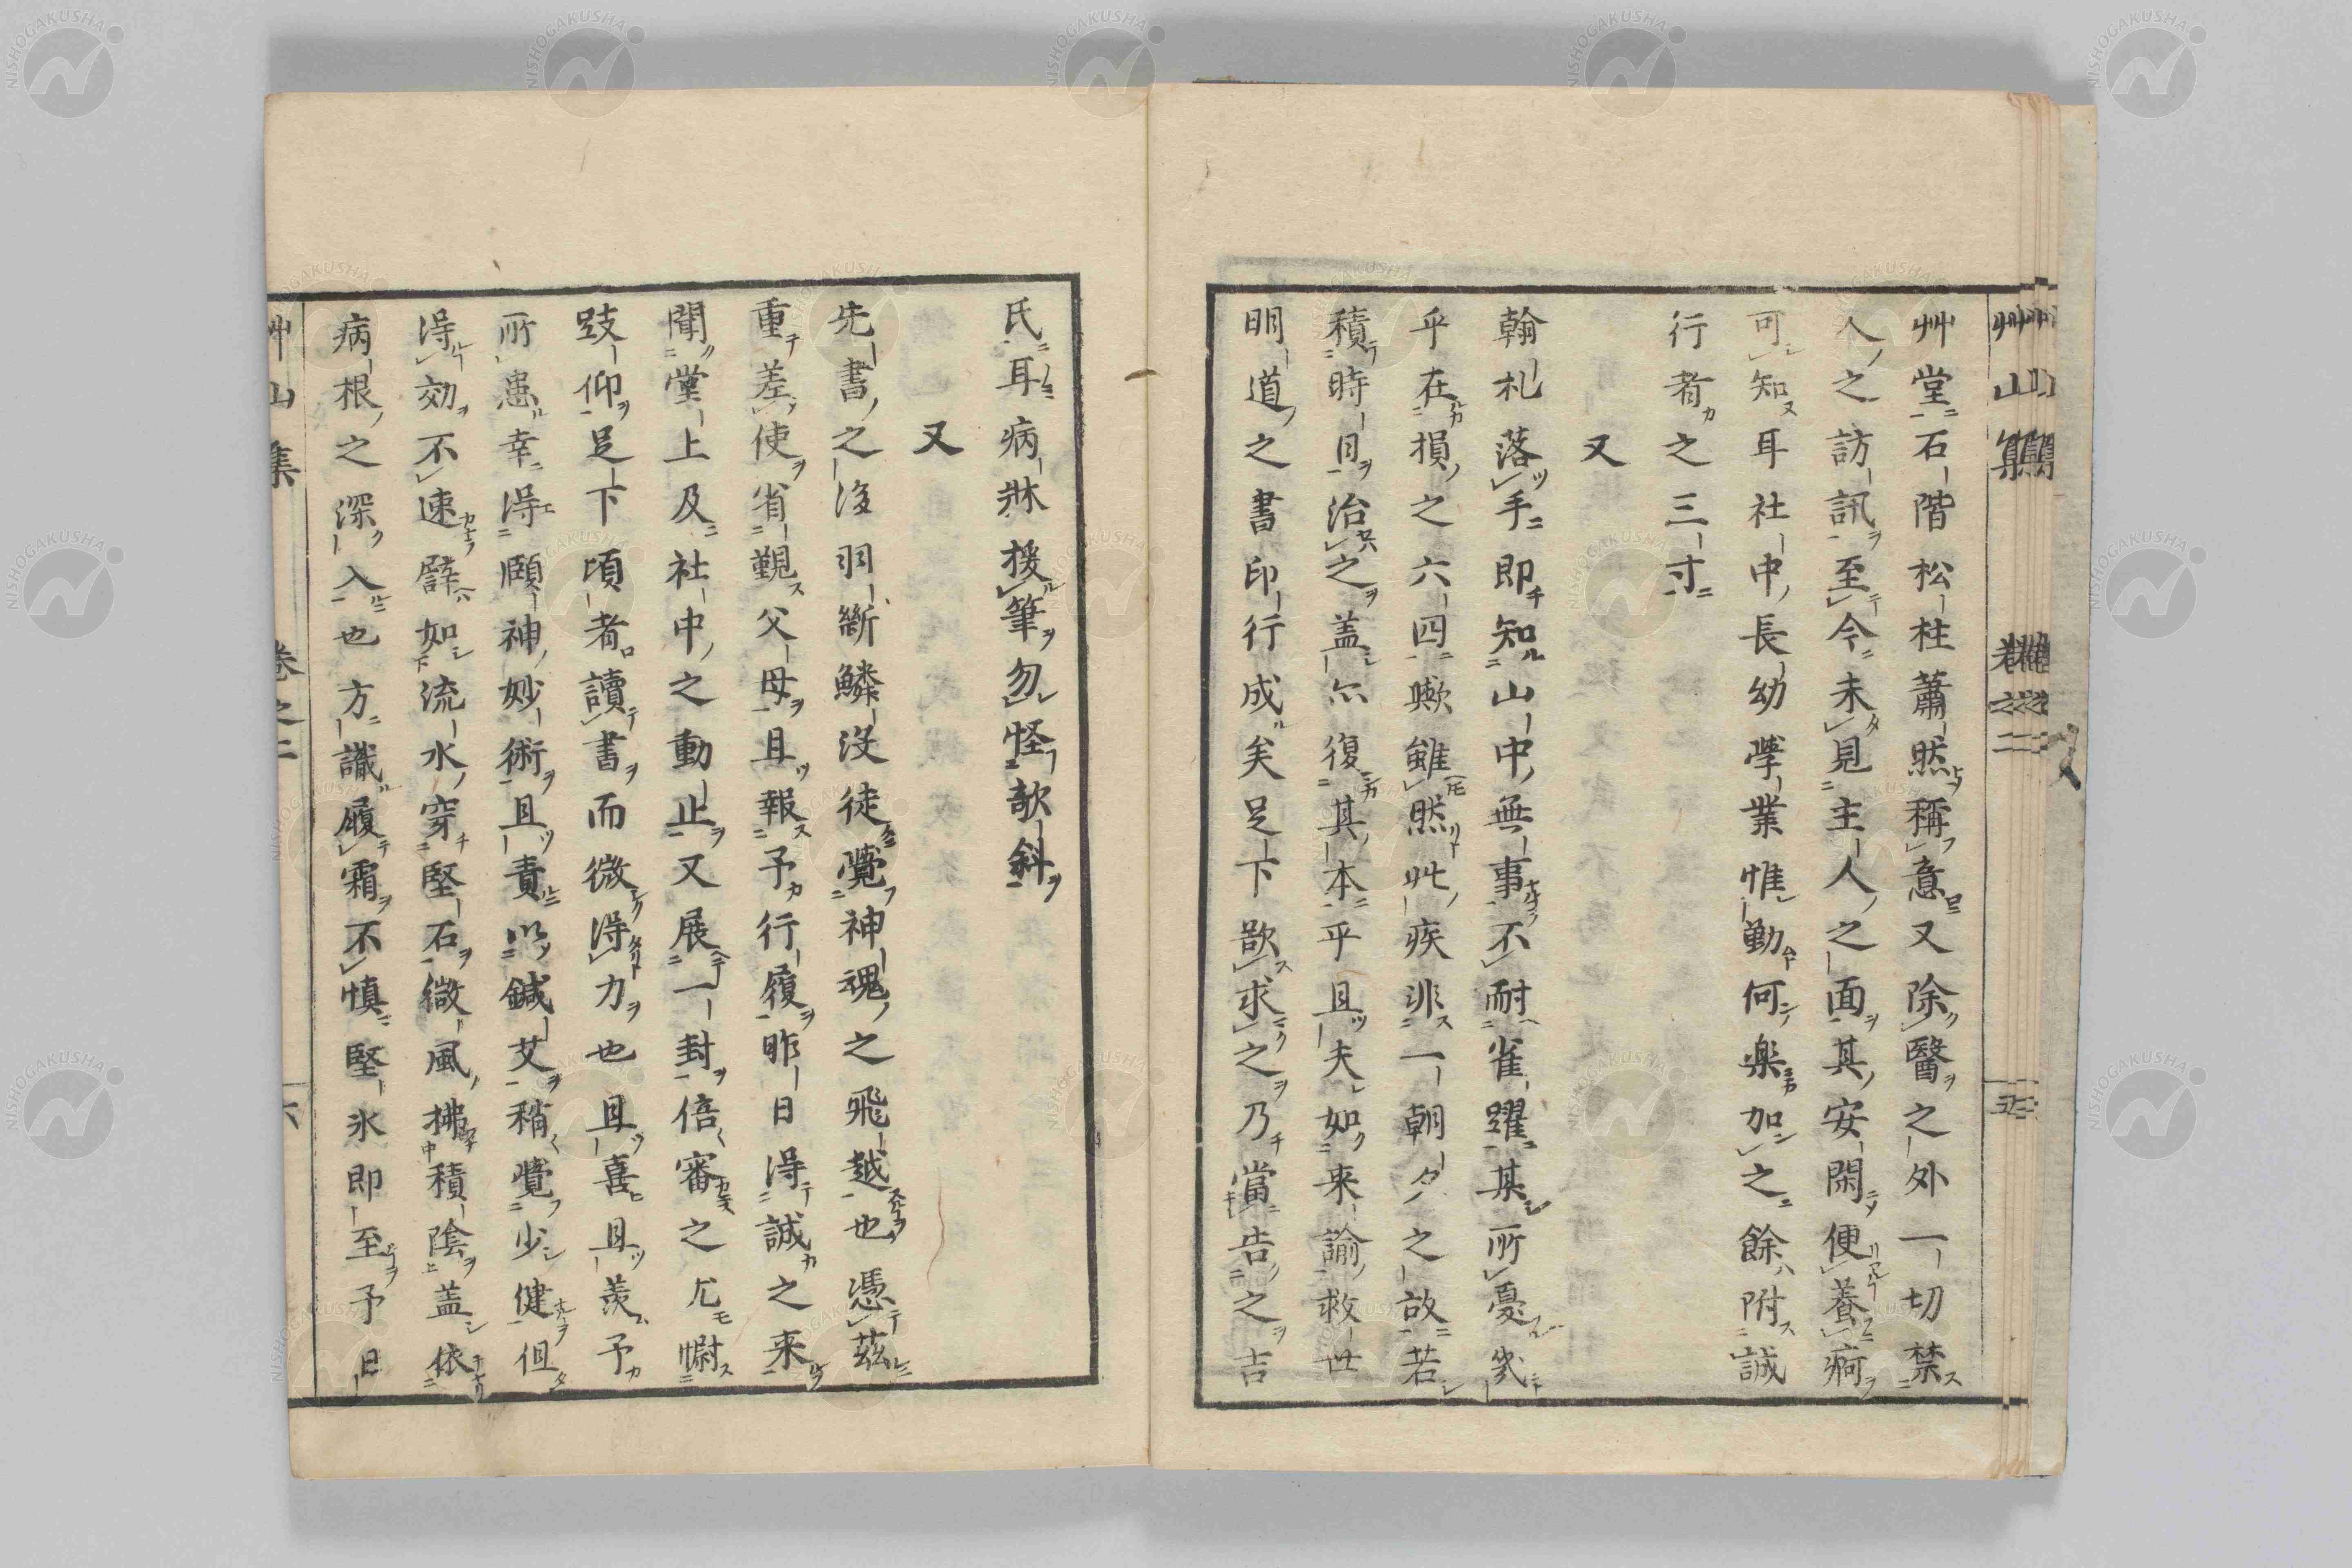 艸堂石階松柱蕭然稱意又除醫之外一切禁
人之訪訊至今未見主人之面其安閑便養痾
可知耳社中長幼學業惟勤何樂加之餘附誠
行者之三寸
又
翰札落手即知山中無事不耐雀躍某所憂
乎在損之六四嗽雖然此疾非一朝夕之故若
積時日治之盖亦復其本乎且夫如来諭救世
明道之書印行成矣足下欲求之乃當告之吉
氏耳病牀援筆勿怪欹斜
又
先書之後羽斷鱗沒徒覺神魂之飛越也憑茲
重差使省覲父母且報予行履昨日得誠之来
聞堂上及社中之動止又展一封倍審之尤慰
跂仰足下頃者讀書而微得力也且喜且羨予
所患幸得頤神妙術且責以鍼艾稍覺少健但
得効不速譬如流水穿堅石微風拂積陰盖依
病根之深入也方識履霜不慎堅氷即至予日
艸山集
卷之二
六